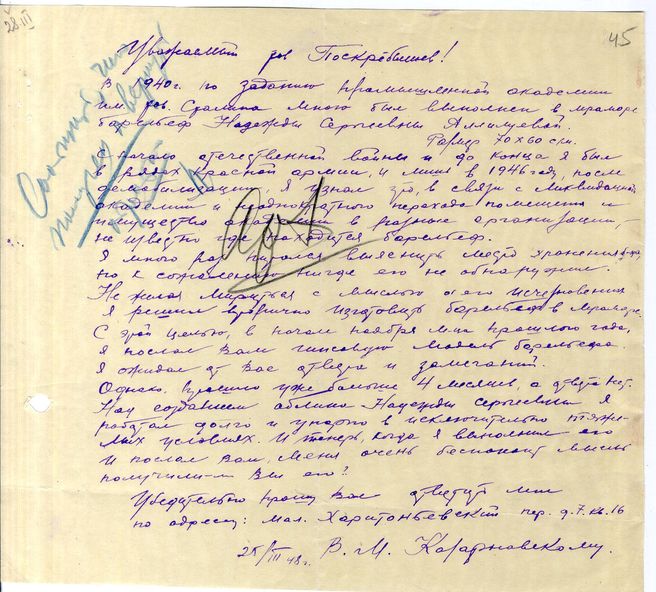 28.III
45
Уважаемый тов Поскрёбышев!
В 1940г. по заданию промышленной академии
им. тов. Сталина мною был выполнен в мраморе
барельеф Надежды Сергеевны Аллилуевой.
Размер 70х60 с/м.
С начала отечественной войны и до конца я был
в рядах красной армии, и лишь в 1946 году, после
демобилизации, я узнал что, в связи с ликвидацией
академии и неоднократного перехода помещения и
имущества академии в разные организации,
неизвестно где находится барельеф.
Я много раз пытался выяснить место хранения
но к сожалению нигде его не обнаружил.
Не желая мириться с мыслью о его исчезновении
Я решил вторично изготовить барельеф в мраморе.
С этой целью, в начале ноября м-ца прошлого года,
я послал Вам гипсовую модель барельефа.
Я ожидал от Вас ответа и замечаний.
Однако, прошло уже больше 4 месяцев, а ответа нет.
Над созданием облика Надежды Сергеевны я
работал долго и упорно в исключительно тяже-
лых условиях. И теперь, когда я выполнил его
и послал Вам, меня очень беспокоит мысль
получили-ли Вы его?
Убедительно прошу Вас ответить мне
по адресу: Мал. Харитоньевский пер. д.7. кв.16
25/III 48г. В. И.